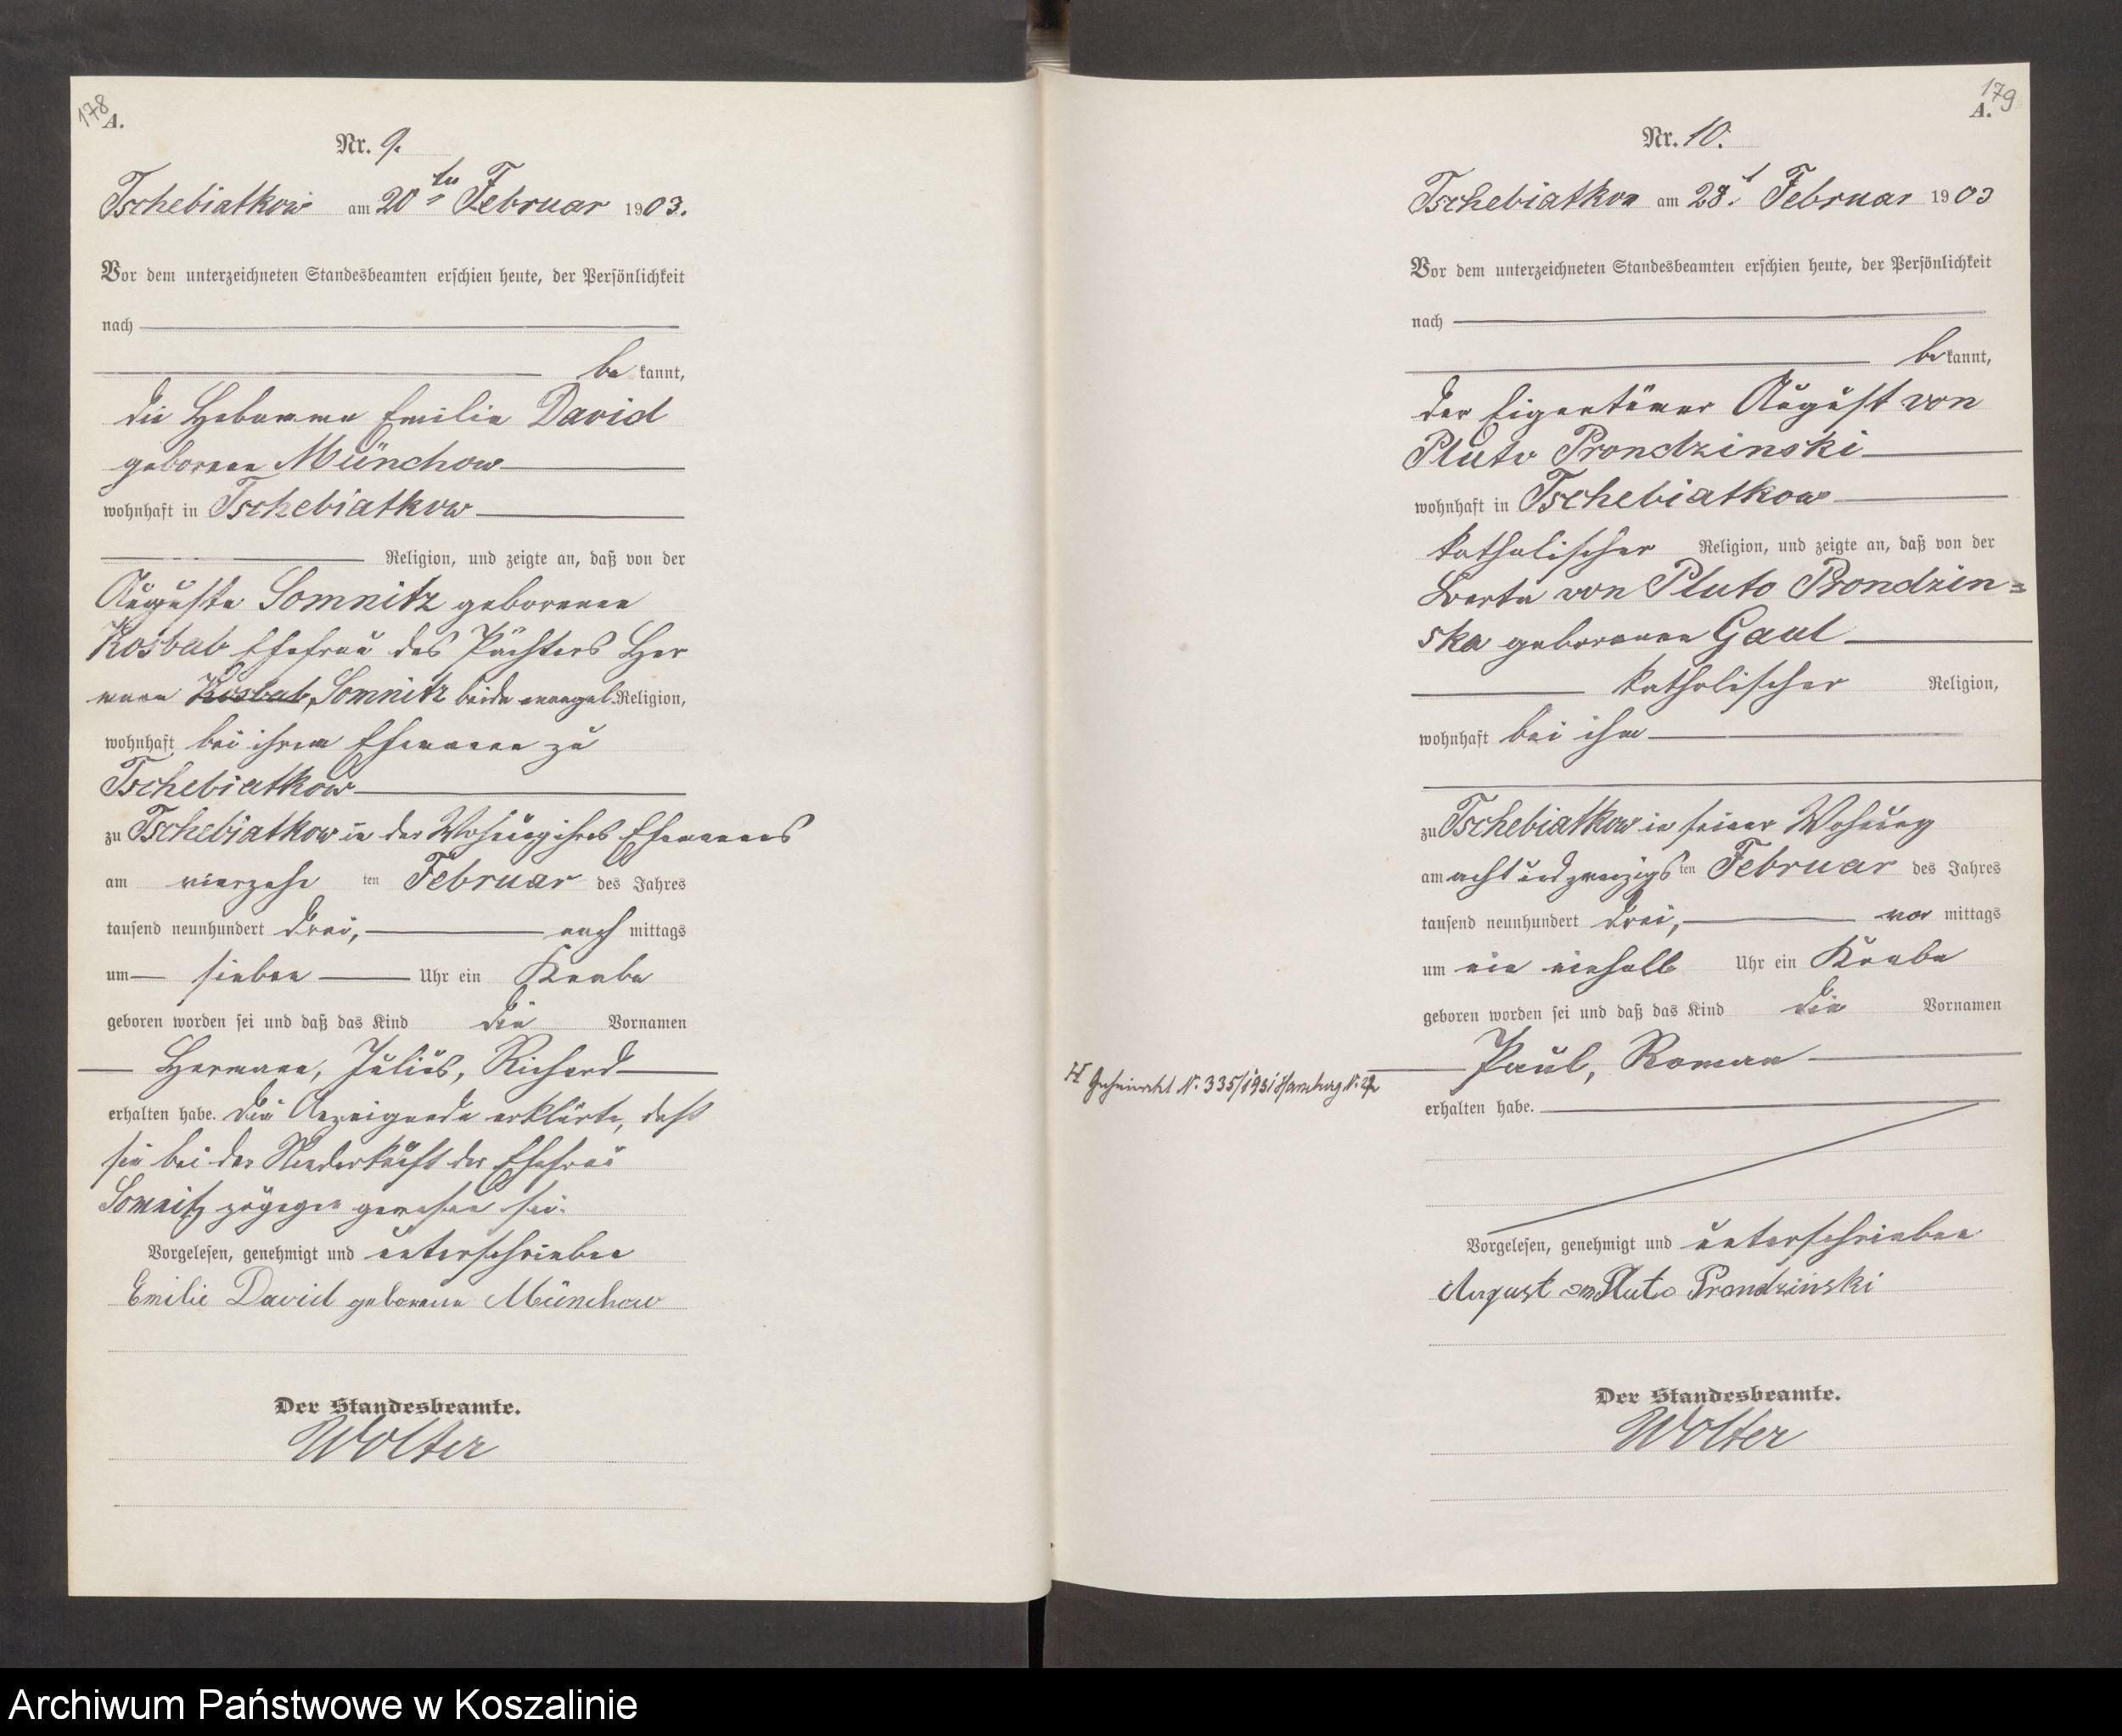 178
A.
Nr. 9.
Tschebiatkow am 20ten Februar 1903.
Vor dem unterzeichneten Standesbeamten erschien heute, der Persönlichkeit
nach
be kannt,
die Hebamme Emilie David
geborene Münchow
wohnhaft in Tschebiatkow
Religion, und zeigte an, daß von der
Auguste Somnitz geborenen
Kosbab Ehefrau des Pächters Her
mann Kosbab, Somnitz beide evangel. Religion,
wohnhaft bei ihrem Ehemanne zu
Tschebiatkow
zu Tschebiatkow in der Wohnung ihres Ehemannes
am vierzehn ten Februar des Jahres
tausend neunhundert drei, nach mittags
um sieben Uhr ein Knabe
geboren worden sei und daß das Kind die Vornamen
Hermann, Julius, Richard
erhalten habe. Die Anzeigende erklärte, daß
sie bei der Niederkunft der Ehefrau
Somnitz zugegen gewesen sei.
Vorgelesen, genehmigt und unterschrieben
Emilie David geborene Münchow
Der Standesbeamte.
Wolter
179
A.
Nr. 10.
Tschebiatkow am 28. Februar 1903
Vor dem unterzeichneten Standesbeamten erschien heute, der Persönlichkeit
nach
be kannt,
der Eigentümer August von
Pluto Prondzinski
wohnhaft in Tschebiatkow
katholischer Religion, und zeigte an, daß von der
Berta von Pluto Prondzin=
ska geborenen Gaul
katholischer Religion,
wohnhaft bei ihm
zu Tschebiatkow in seiner Wohnung
am acht und zwanzigs ten Februar des Jahres
tausend neunhundert drei, vor mittags
um ein einhalb Uhr ein Knabe
geboren worden sei und daß das Kind die Vornamen
Paul, Roman
N. 335/1931 Hamburg
erhalten habe.
Vorgelesen, genehmigt und unterschrieben
August von Pluto Prondzinski
Der Standesbeamte.
Wolter
Archiwum Państwowe w Koszalinie